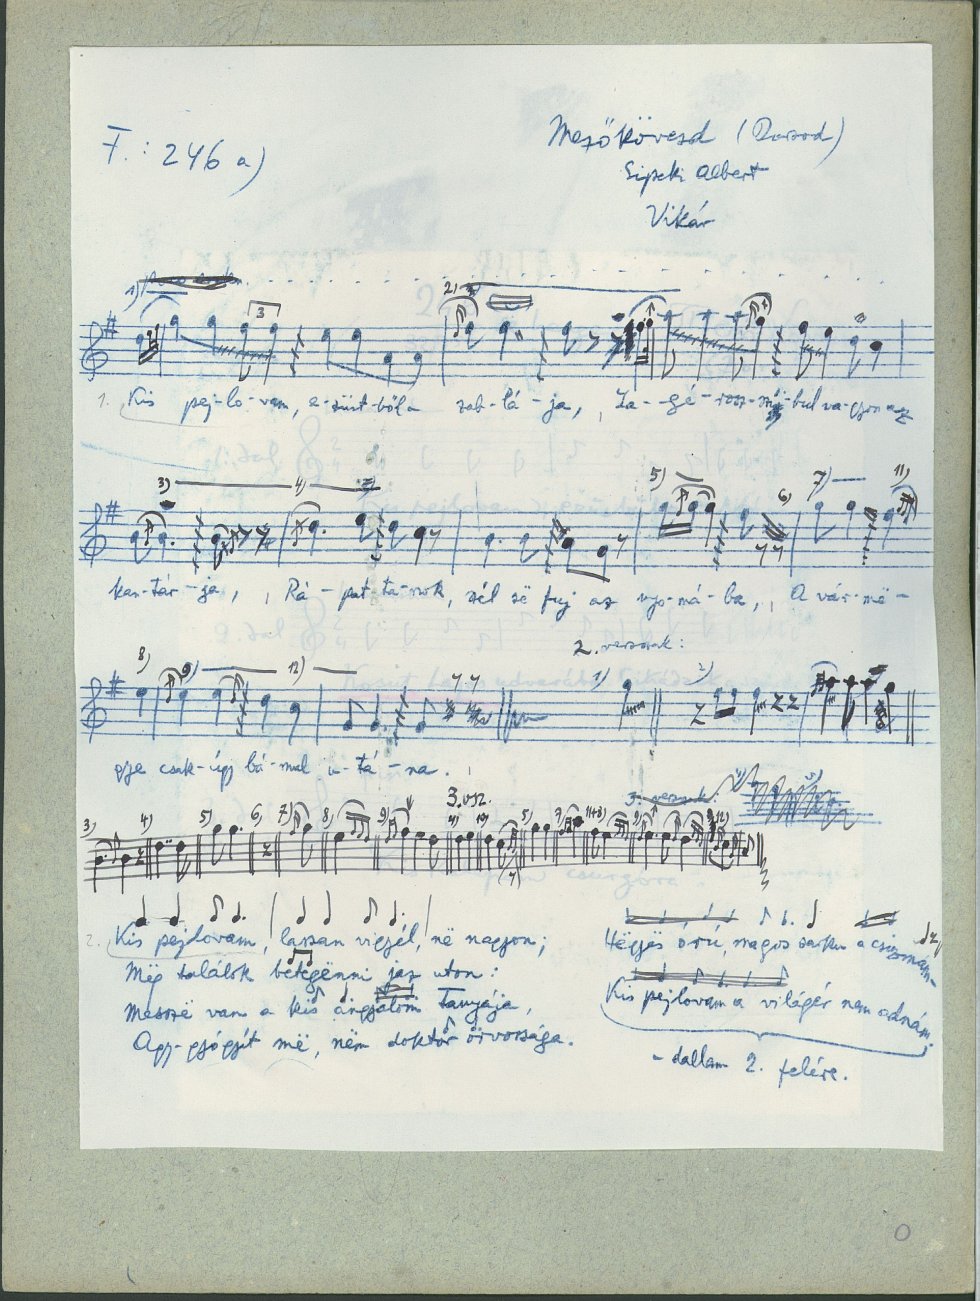 F.: 246 a)
Mezőkövesd (Borsod)
Sipeki Albert
Vikár
1) 2)
3
1. Kis pej-lo-vam, e-züst-bőla zab-lá-ja, Za-gé-rossz-má-bul va-gyon az
3) 4) 5) 6) 7) 11)
kan-tár-ja, Rá-pat-ta-nok, zél së fuj az nyo-má-ba, A vár-më-
2. versszak:
8) 9) 12) 1) 2)
gye csak-úgy bá-mul u-tá-na.
3. vsz.
3) 4) 5) 6) 7) 8) 9)
2. Kis pejlovam, lassan vigyél, në nagyon;
Mëg találok betegënni jaz uton:
Messzë van a kis angyalom tanyája,
Agy-gyógyít më, nëm doktor orvossága.
Hëgyës orrú, magos sarku a csizmám
Kis pejlovam a világér nem adnám.
- dallam 2. felére.
O